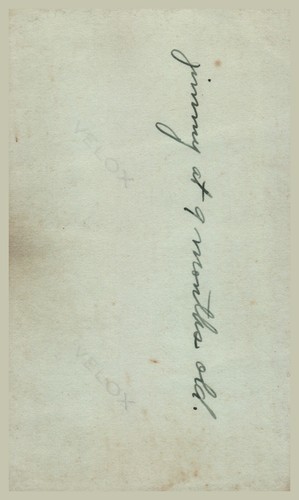 Jimmy at 9 months old.
VELOX
VELOX